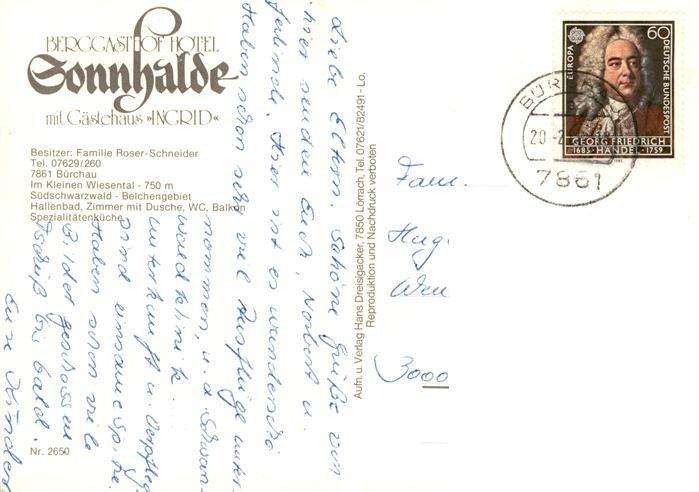 BERGGASTHOF HOTEL
Sonnhalde
mit Gästehaus »INGRID«
Besitzer: Familie Roser-Schneider
Tel. 07629/260
7861 Bürchau
Im Kleinen Wiesental - 750 m
Südschwarzwald - Belchengebiet
Hallenbad, Zimmer mit Dusche, WC, Balkon
Spezialitätenküche
Nr. 2650
Liebe Eltern. Schöne Grüße von
hier senden Euch, Norbert u.
Gerlinde. Hier ist es wunderschö
Haben schon sehr viel Ausflüge unter-
nommen, u. a. Schwarz
waldklinik.
Unterkunft u. Verpfleg
sind einsame Spitze
Haben schon viele
Bilder geschossen
Tschüß bis bald.
Eure Kinder
Aufn. u. Verlag Hans Dreisigacker, 7850 Lörrach, Tel. 07621/82491 - Lo.
Reproduktion und Nachdruck verboten
EUROPA
60
DEUTSCHE BUNDESPOST
GEORG FRIEDRICH
1685 HÄNDEL 1759
7861
Fam.
Hug
Wen
3000